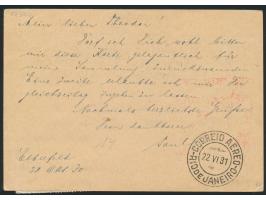 Mein lieber Theodor!
Darf ich Dich wohl bitten
mir diese Karte gelegentlich für
meine Sammlung zurückzusenden
Eine zweite erlaubte ich mir Dir
gleichzeitig zugehen zu lassen.
Nochmals herzliche Grüße
Dein dankbarer
Paul
Elberfeld
CORREIO AEREO
22 VI 31
RIO DE JANEIRO